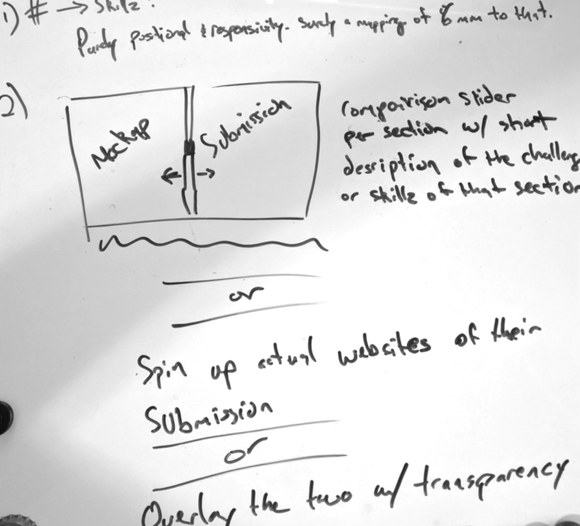 1) # → Skillz.
Purely positional & responsivity. Surely a mapping of mm to that.
2)
Mockup
Submission
Comparison slider
per section w/ short
desription of the challeng
or skillz of that section
or
Spin up actual websites of their
Submission
or
Overlay the two w/ transparency